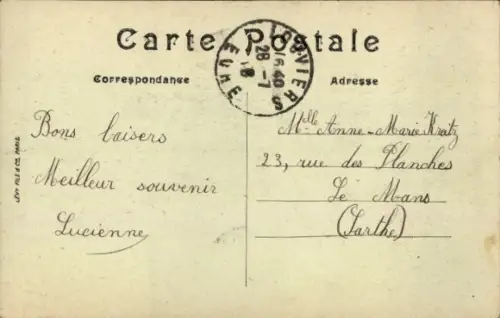 Carte Postale
Correspondance
Adresse
LOUVIERS
16 40
28 - 7
EURE
Bons baisers
Meilleur souvenir
Lucienne
Mlle Anne-Marie Kratz
23, rue des Planches
Le Mans
(Sarthe)
LÉVY FILS & CO. PARIS